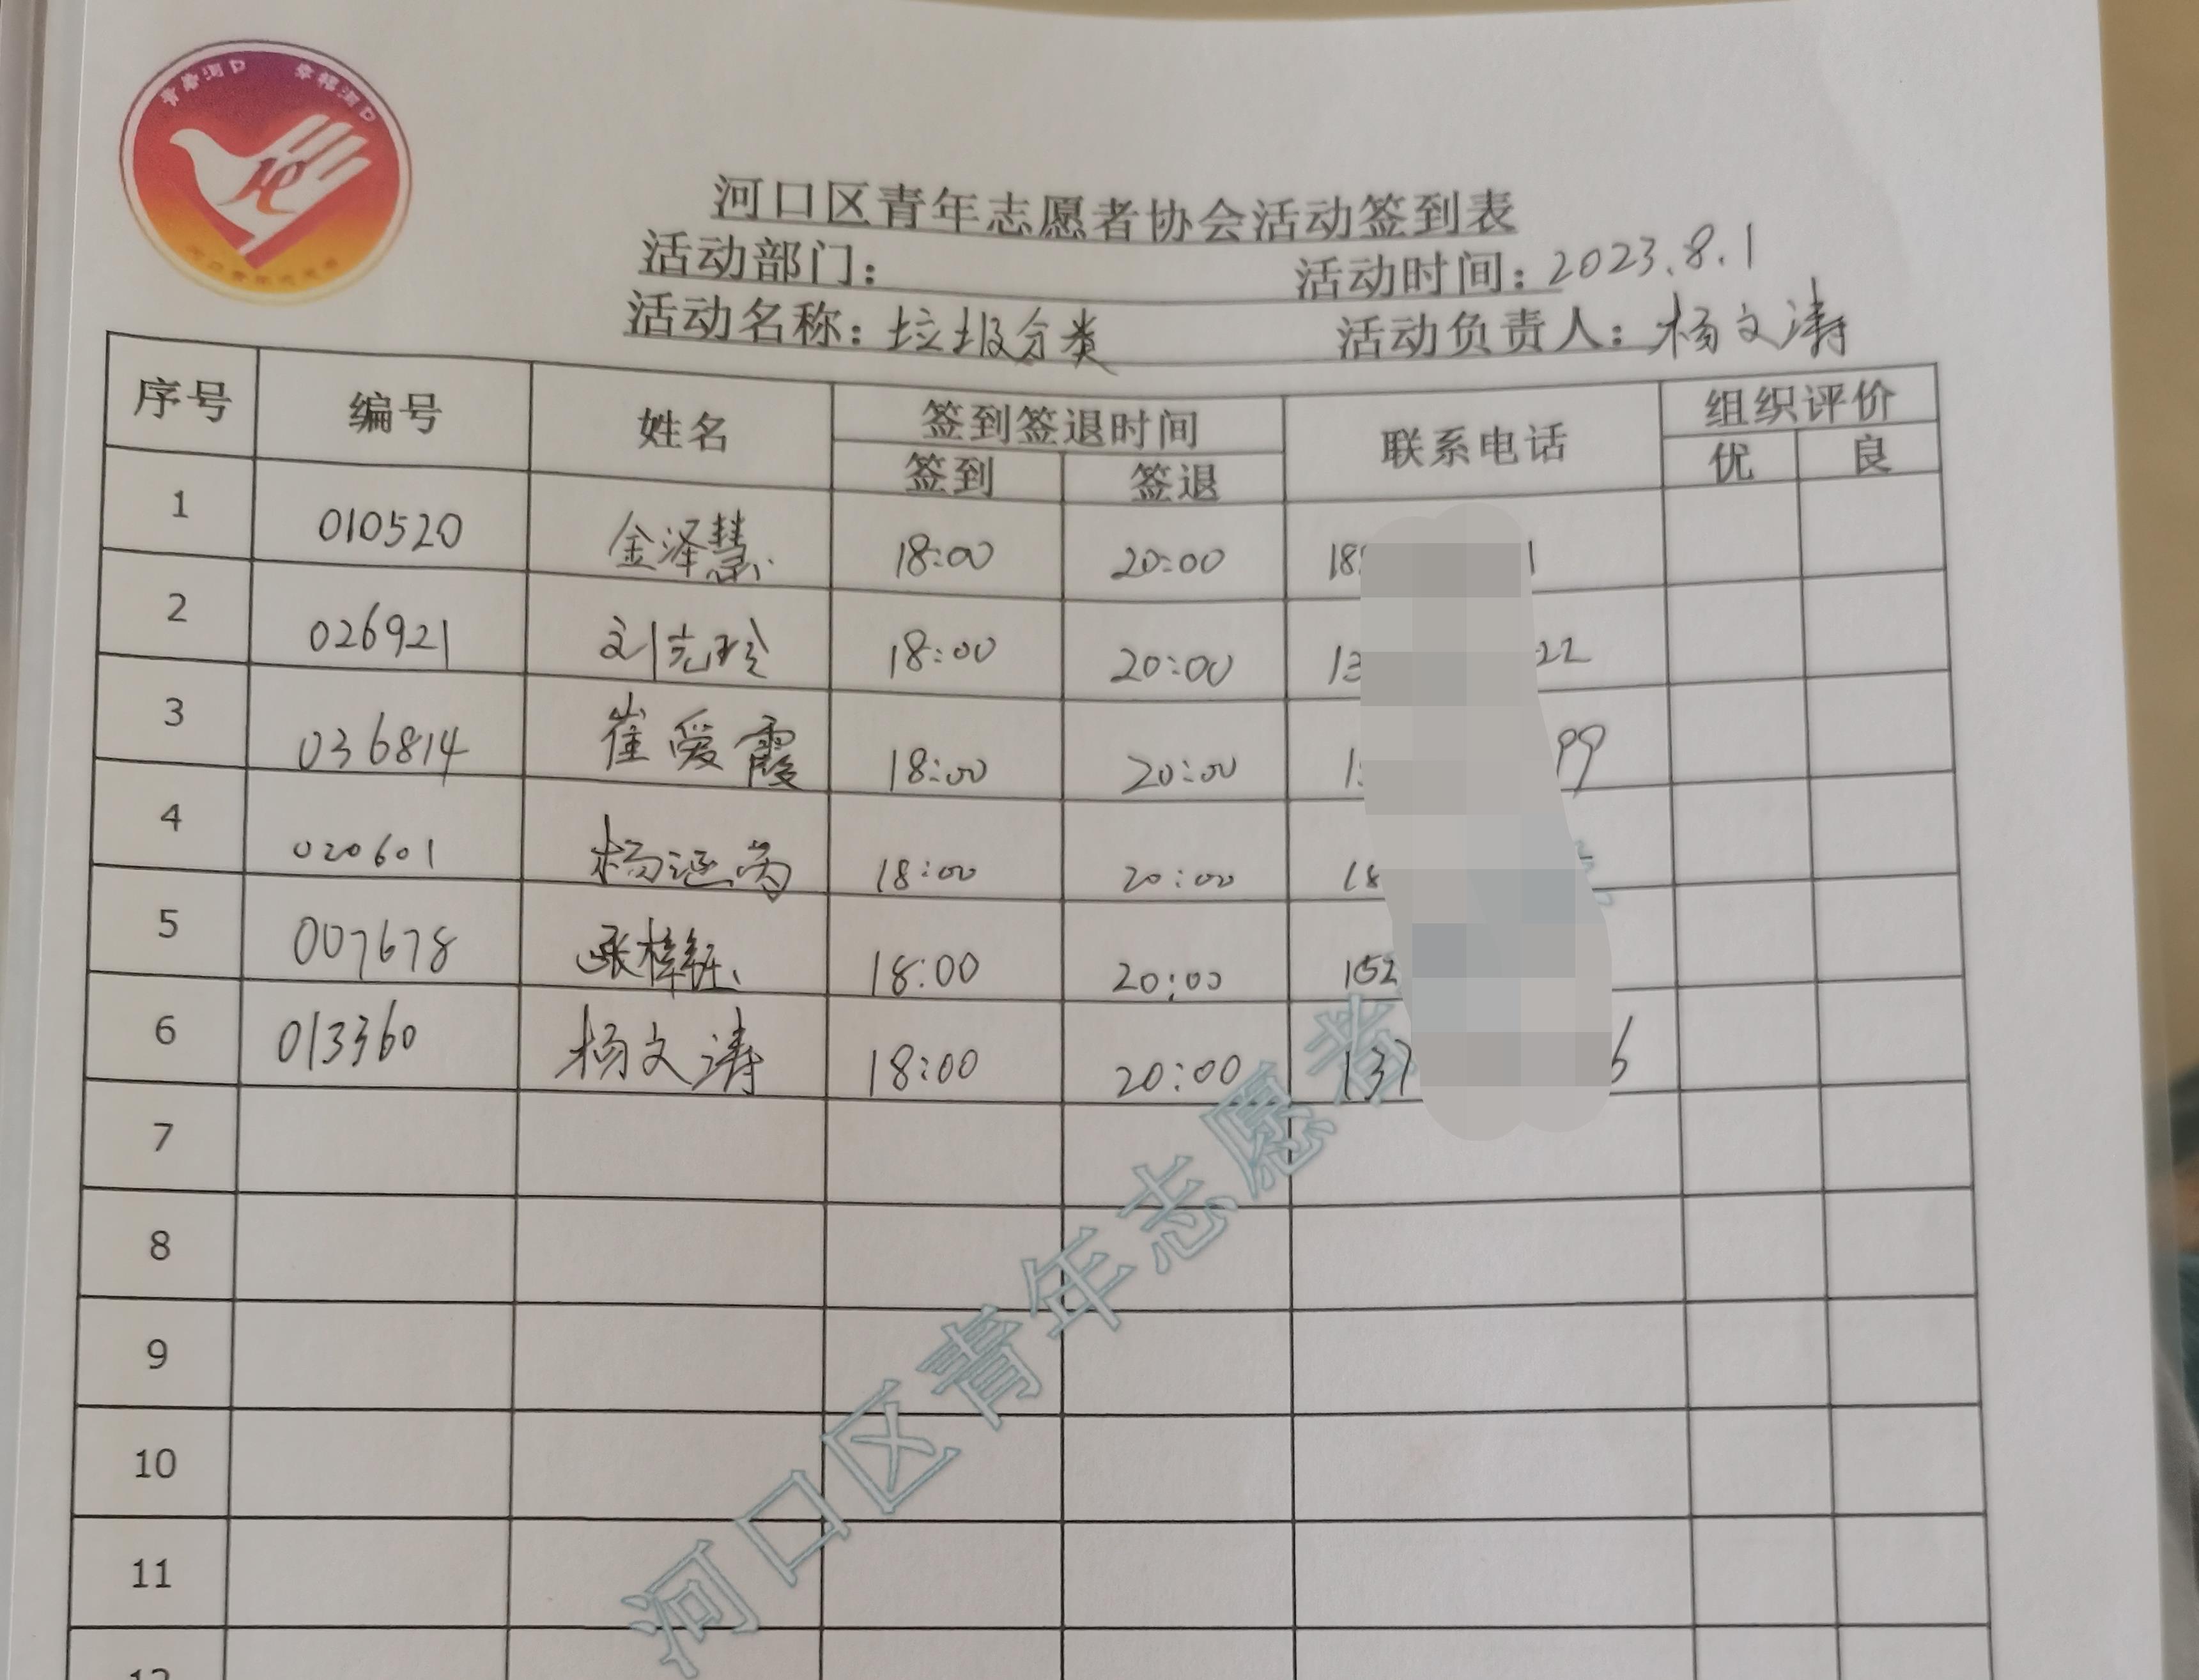 青春河口 幸福河口
河口区青年志愿者协会活动签到表
活动部门： 活动时间：2023.8.1
活动名称：垃圾分类 活动负责人：杨文涛
序号 编号 姓名 签到签退时间 联系电话 组织评价
签到 签退 优 良
1 010520 金泽慧 18:00 20:00 18 1
2 026921 刘光玲 18:00 20:00 13 22
3 036814 崔爱霞 18:00 20:00 1 99
4 020601 杨涵 18:00 20:00 18
5 007678 张梓钰 18:00 20:00 152
6 013360 杨文涛 18:00 20:00 137 6
7
8
9
10
11
12
河口区青年志愿者